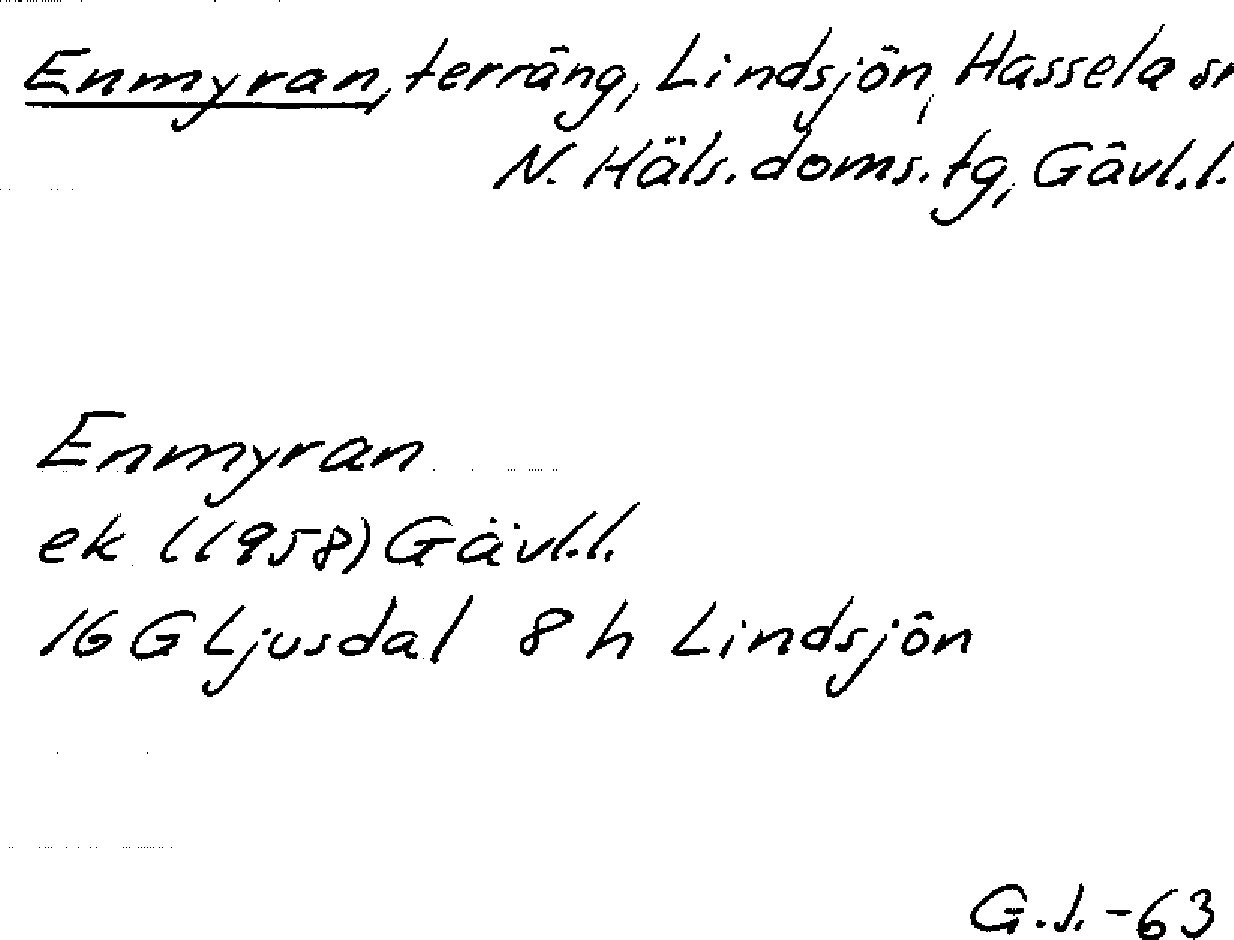 Enmyran, terräng, Lindsjön, Hassela sn
N. Häls. doms. tg, Gävl.l.
Enmyran
ek (1958) Gävl.l.
16 G Ljusdal 8 h Lindsjön
G.J.-63